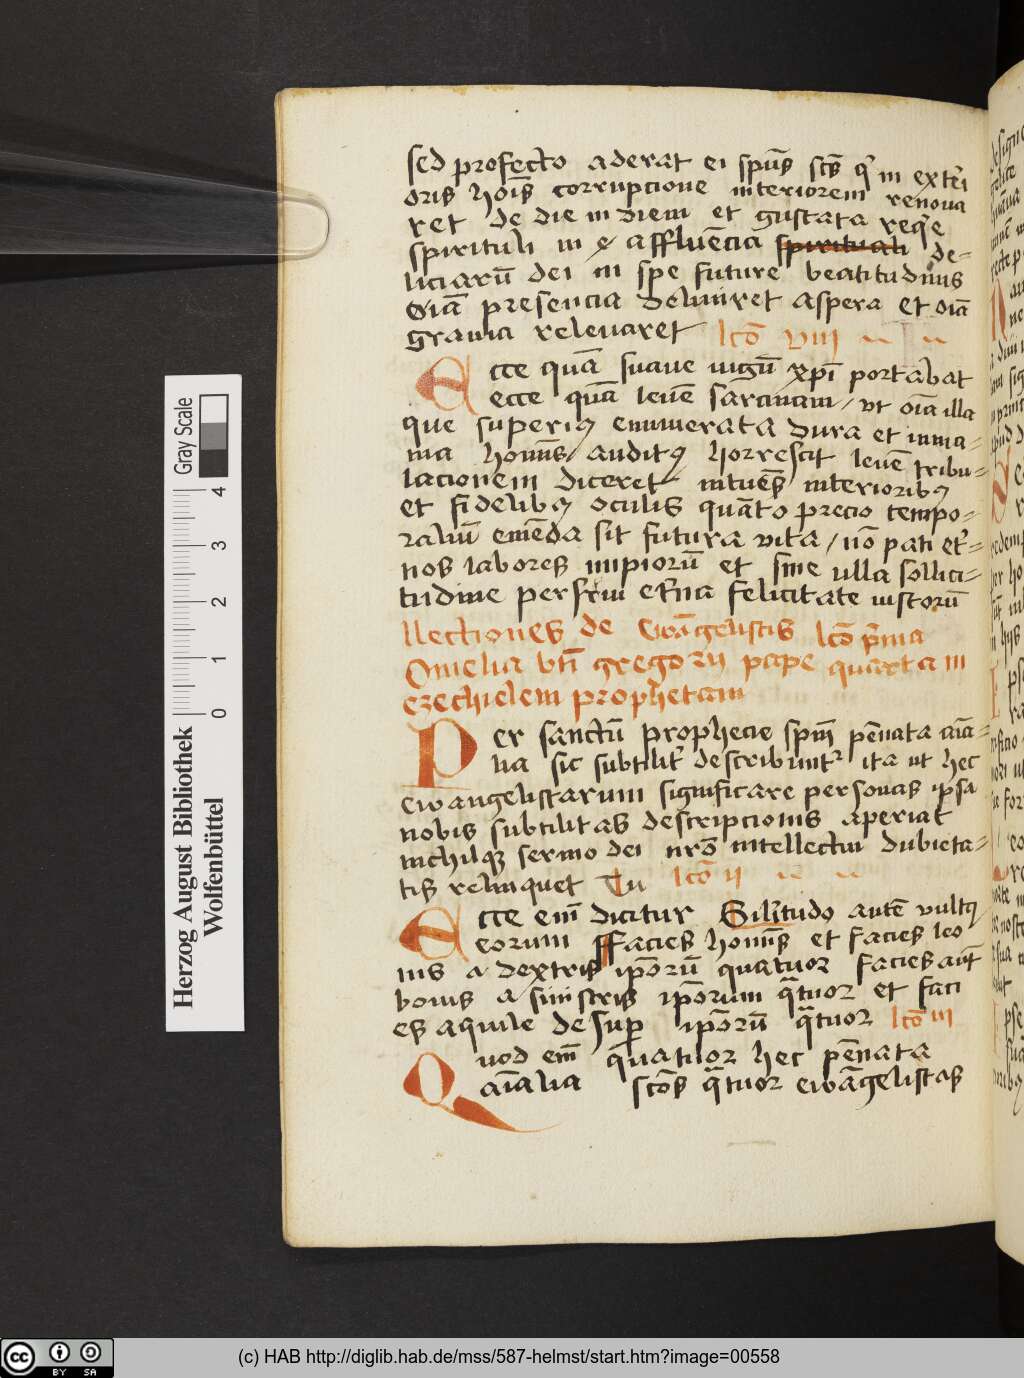 sed profecto aderat ei spūs scs̄ qͥ in exteri
oris hoīs corrupcione interiorem renoua
ret de die in diem et gustata reqͥe
spirituli in affluēcia spirituali de-
liciarū dei in spe future beatitudinis
oīa presencia deliniret aspera et oīa
grauia releuaret lcō viii
Ecce quā suaue iugū xpī portabat
ecce quā leuē sarcinam / vt oīa illa
que superiꝰ enumerata dura et inma-
nia homīs / auditꝰ horrescit leuē tribu-
lacionem diceret intuēs interioribꝰ
et fidelibꝰ oculis quāto precio tempo-
ralium emēda sit futura vita / nō pati et̛-
nos labores impiorū et sine ulla sollici-
tudine perfrui et̛na felicitate iustorū
llectiones de ewāgelistis lcō pͥma
Omelia btī gregorii pape quarta in
ezechielem prophetam
Per sanctū prophecie spm̄ pēnata aīa-
lia sic subtilit̛ describuntᷣ ita ut hec
ewangelistarum significare personas ipsa
nobis subtilitas descripcionis aperiat
nichilqꝫ sermo dei nrō intellectui dubieta-
tis relinquet Tu lcō ii
Ecce em̄ dicitur Silītudo autē vultꝰ
eorum ffacies homīs et facies leo
nis a dextris ipōrū quatuor facies aūt
bouis a sinistris ipōrum qᵃtuor et faci
es aquile desuꝑ ipōrū qᵃtuor lcō iii
Quod em̄ quatuor hec pēnata
aīalia scōs qᵃtuor ewāgelistas
Herzog August Bibliothek
Wolfenbüttel
0 1 2 3 4
Gray Scale
cc BY SA
(c) HAB http://diglib.hab.de/mss/587-helmst/start.htm?image=00558